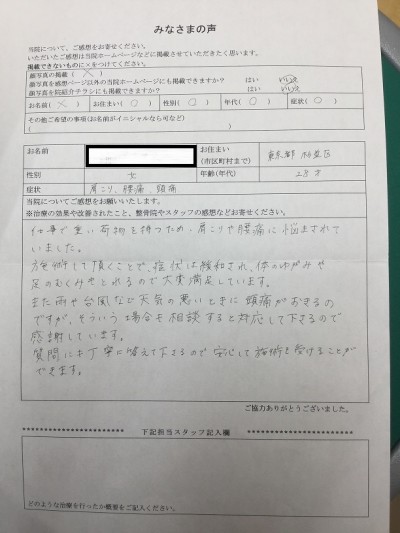 みなさまの声
当院について、ご感想をお寄せください。
いただいたご感想は当院ホームページなどに掲載させていただきたく思います。
掲載できないものに×をつけてください。
顔写真の掲載 ( × )
顔写真を感想ページ以外の当院ホームページにも掲載できますか? はい いいえ
顔写真を院紹介チラシにも掲載できますか? はい いいえ
お名前(×) お住まい(○) 性別(○) 年代(○) 症状(○)
その他ご希望の事項(お名前がイニシャルなら可など)
( )
お名前 お住まい(市区町村まで) 東京都 杉並区
性別 女 年齢(年代) 28才
症状 肩こり、腰痛、頭痛
当院についてご感想をお願いします。
※治療の効果や改善されたこと、整骨院やスタッフの感想などお寄せください。
仕事で重い荷物を持つため、肩こりや腰痛に悩まされて
いました。
施術して頂くことで、症状は緩和され、体のゆがみや
足のむくみもとれるので大変満足しています。
また雨や台風など天気の悪いときに頭痛がおきるの
ですが、そういう場合も相談すると対応して下さるので
感謝しています。
質問にも丁寧に答えて下さるので安心して施術を受けることが
できます。
ご協力ありがとうございました。
******************** 下記担当スタッフ記入欄 ********************
どのような治療を行ったか概要をご記入ください。